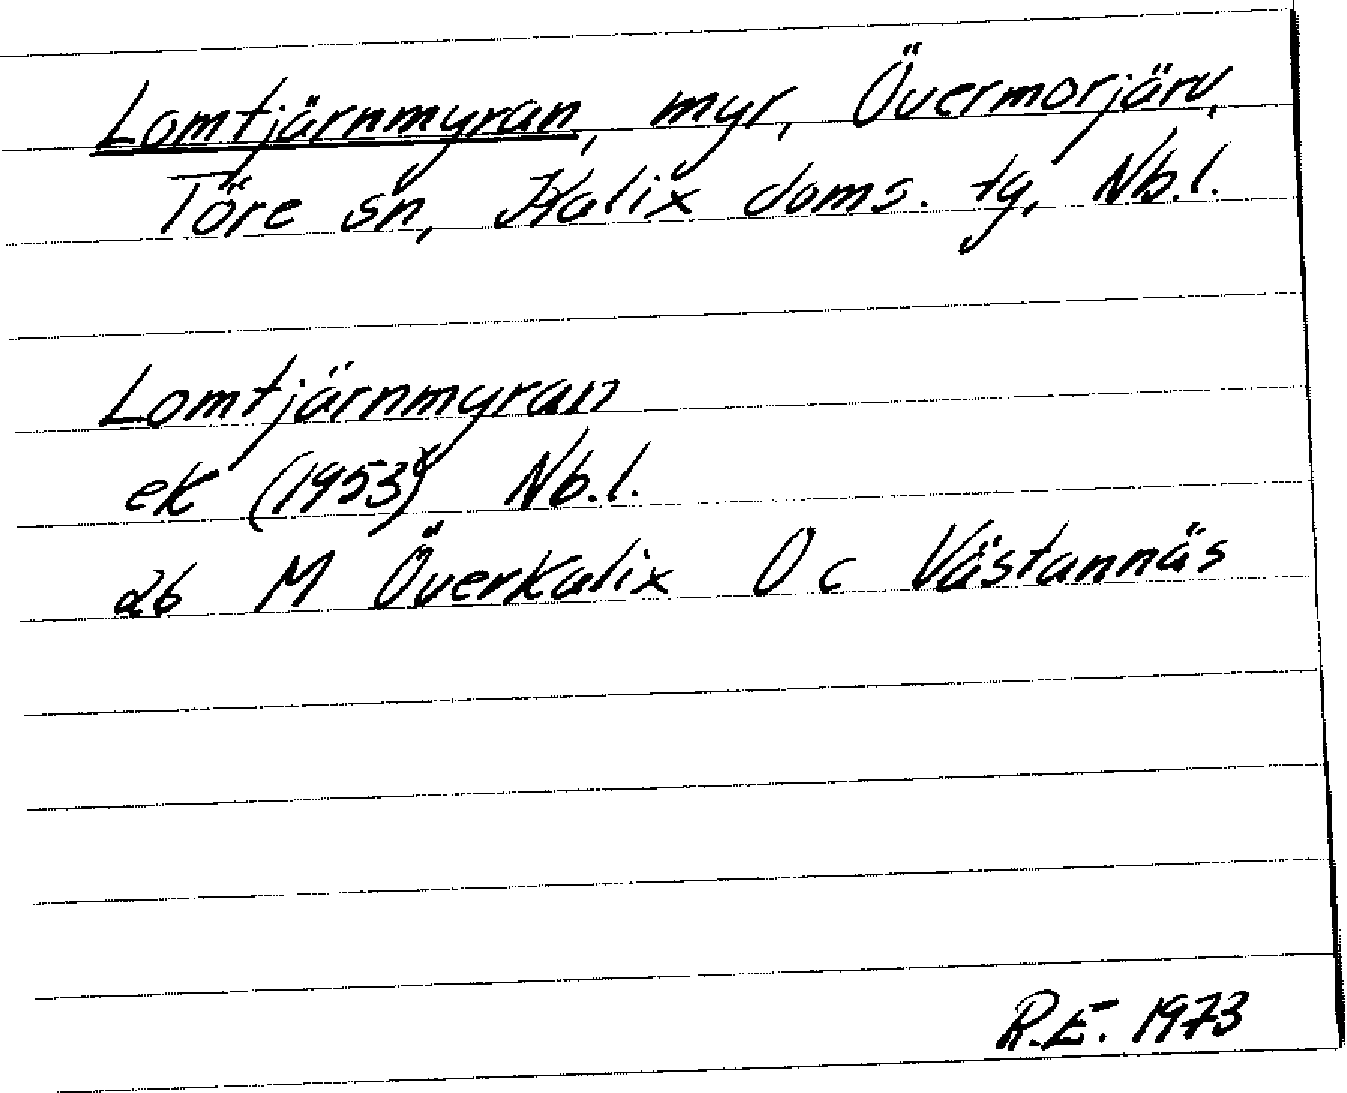 Lomtjärnmyran, myr, Övermorjärv,
Töre sn, Kalix doms. tg, Nb.l.
Lomtjärnmyran
ek (1953) Nb.l.
26 M Överkalix 0 c Västannäs
R.E. 1973